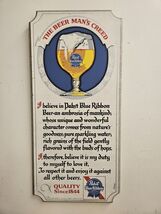 THE BEER MAN'S CREED
Pabst
Blue Ribbon
I believe in Pabst Blue Ribbon
Beer-an ambrosia of mankind,
whose unique and wonderful
character comes from nature's
goodness; pure sparkling water,
rich grains of the field gently
flavored with the buds of hops.
I therefore, believe it is my duty
to myself to love it.
To respect it and enjoy it against
all other beers.
QUALITY
Since 1844
Pabst
Blue Ribbon